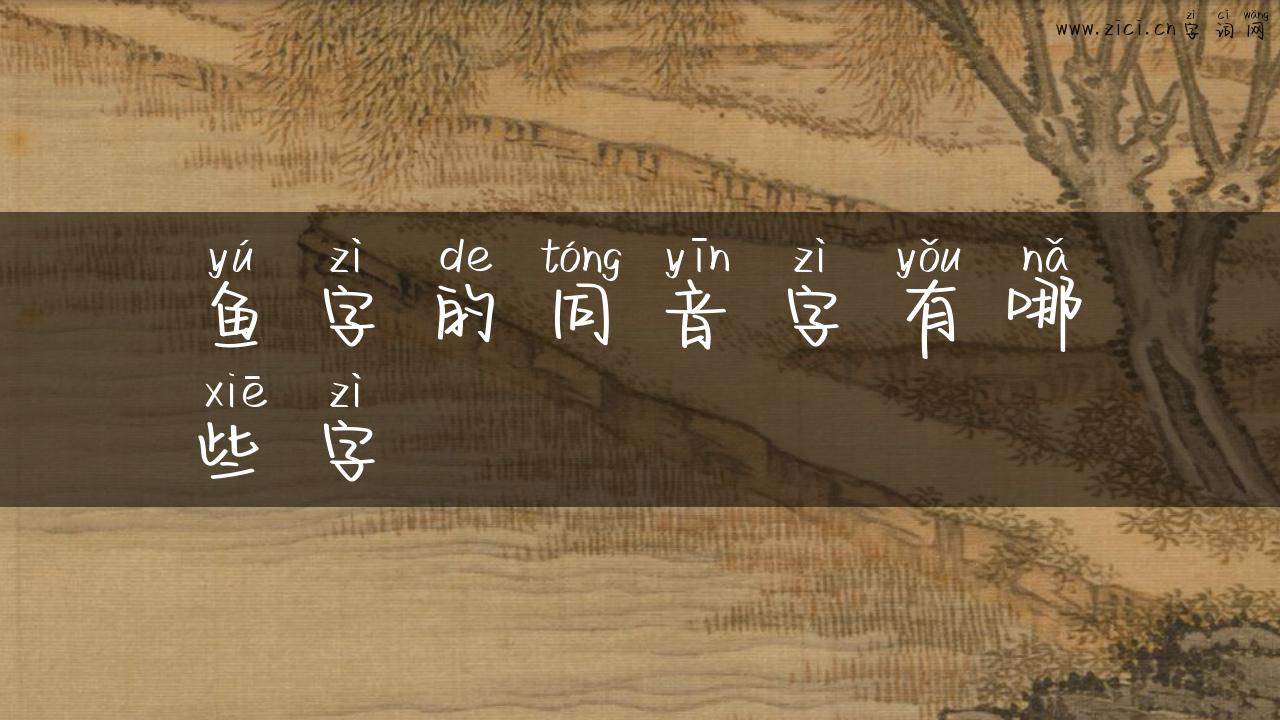 zì cí wǎng
www.zici.cn字词网
yú zì de tóng yīn zì yǒu nǎ
鱼字的同音字有哪
xiē zì
些字